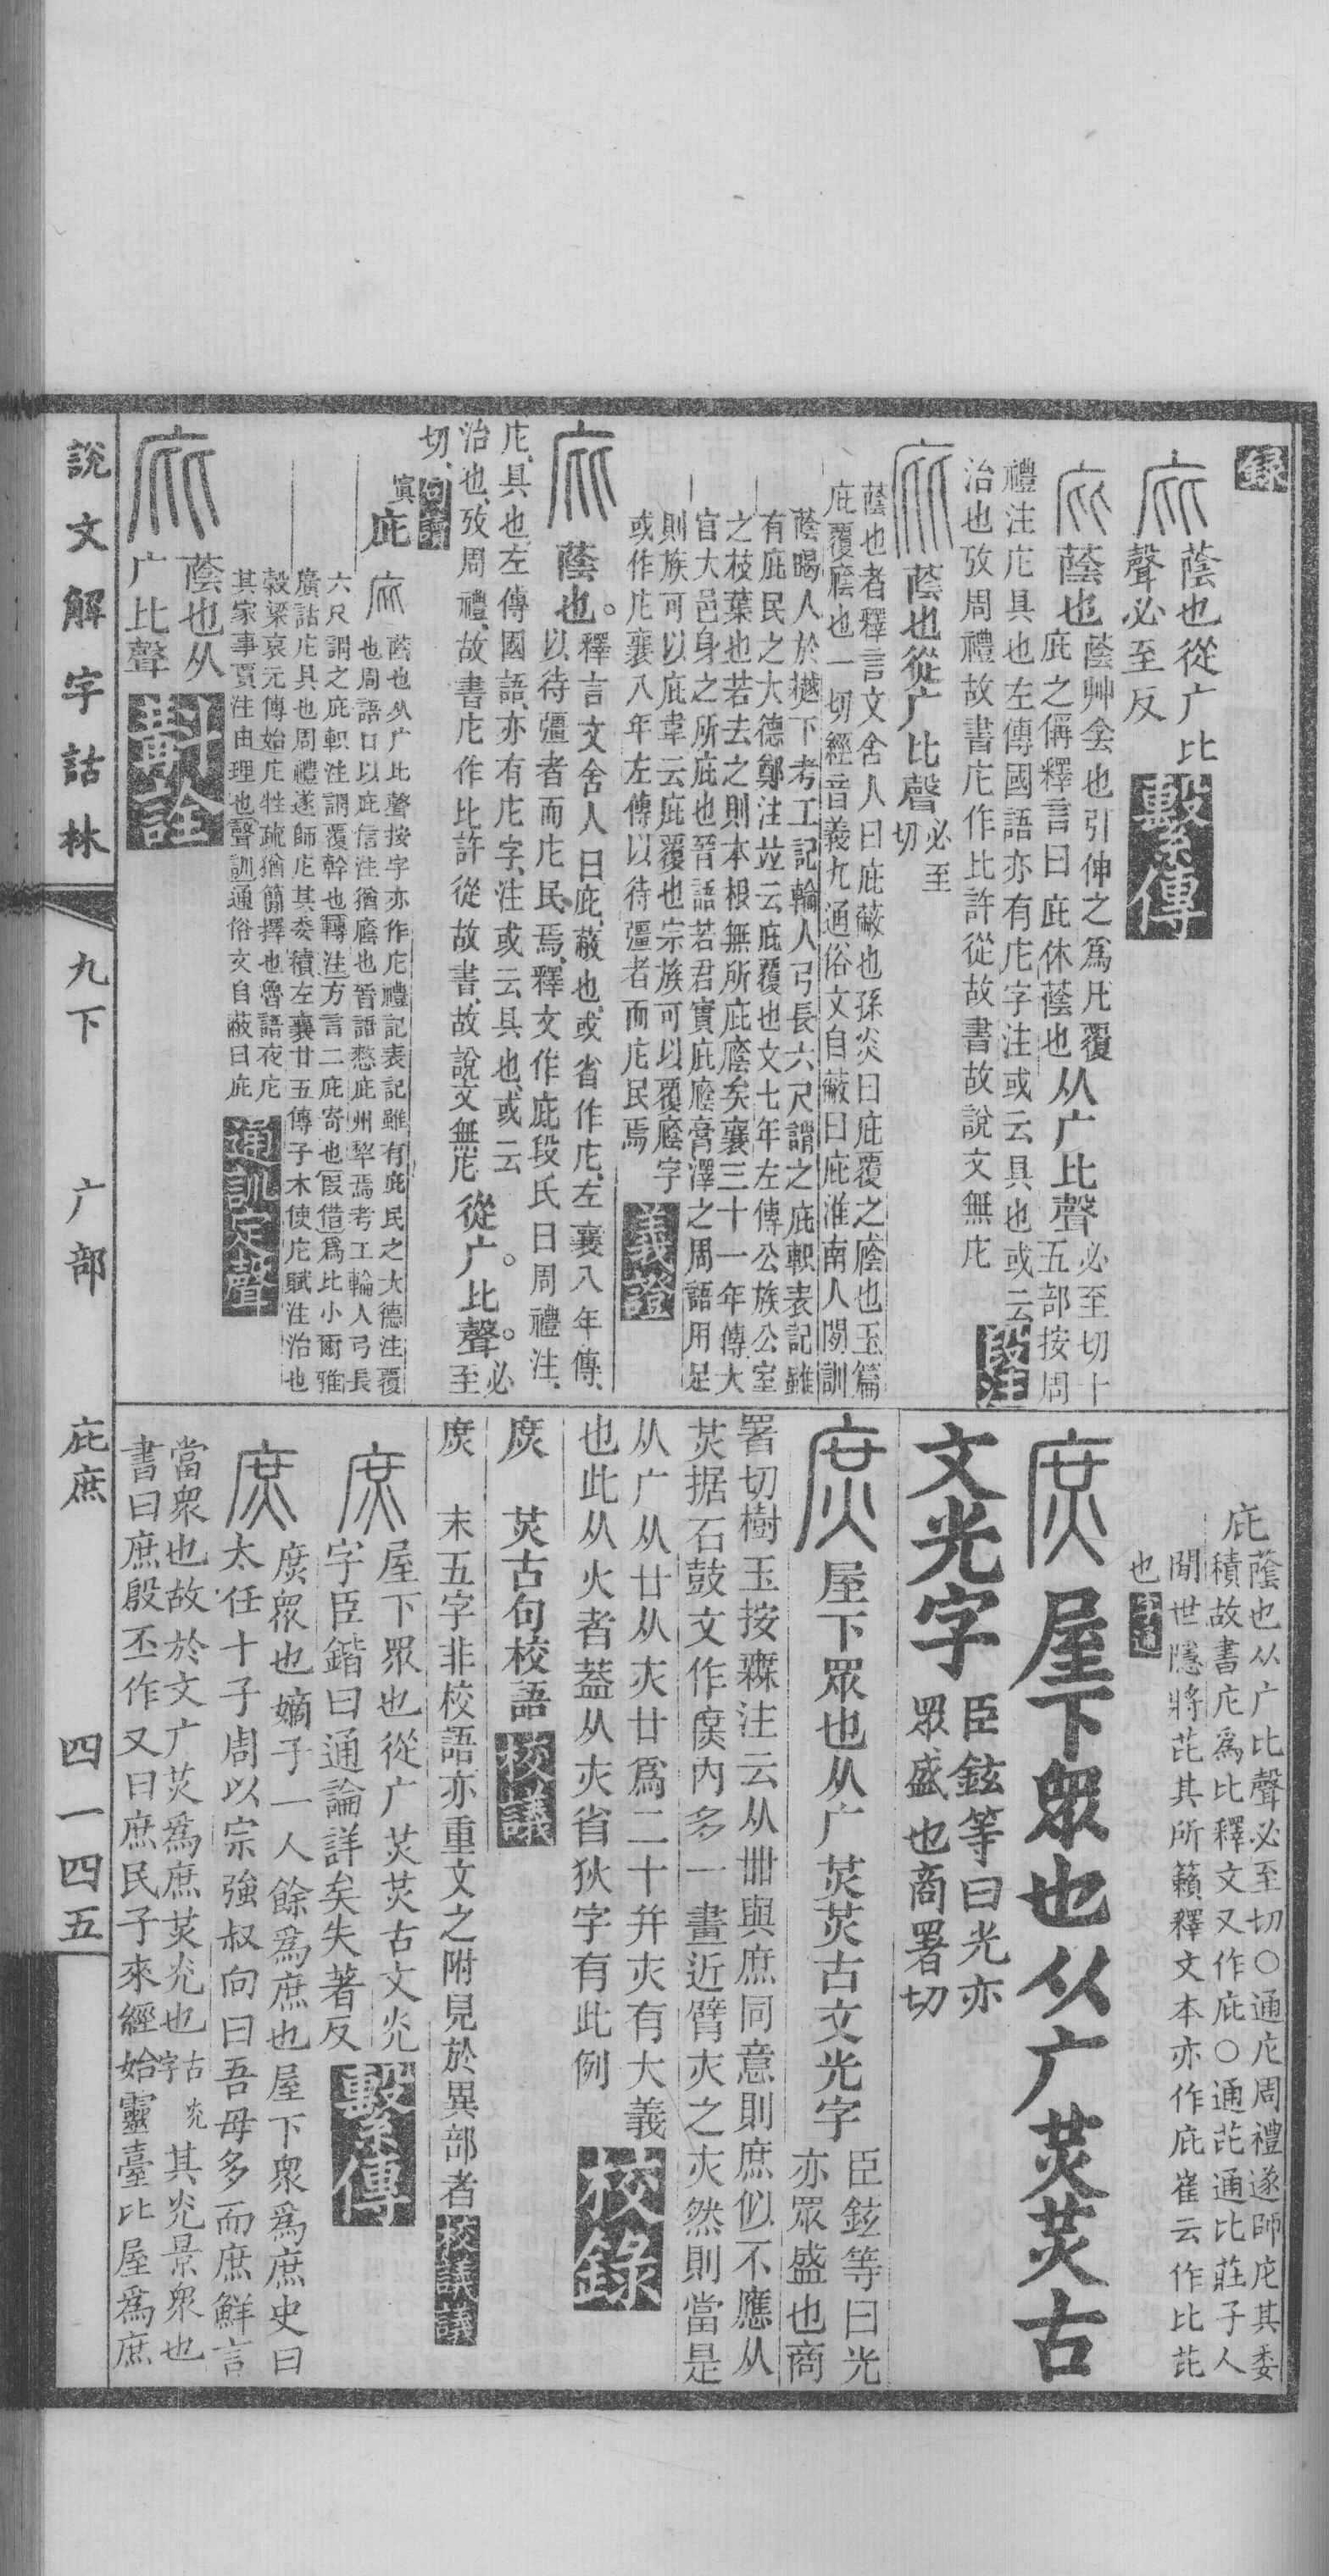 錄
庇
蔭也從广比
聲必至反
繫傳
庇
蔭也
蔭艸侌也引伸之爲凡覆
庇之偁釋言曰庇休蔭也
从广比聲
必至切十
五部按周
禮注庀具也左傳國語亦有庀字注或云具也或云
治也攷周禮故書庀作比許從故書故說文無庀
段注
庇
蔭也從广比聲
必至
切
蔭也者釋言文舍人曰庇蔽也孫炎曰庇覆之廕也玉篇
庇覆廕也一切經音義九通俗文自蔽曰庇淮南人閒訓
蔭暍人於樾下考工記輪人弓長六尺謂之庇軹表記雖
有庇民之大德鄭注竝云庇覆也文七年左傳公族公室
之枝葉也若去之則本根無所庇廕矣襄三十一年傳大
官大邑身之所庇也晉語若君實庇廕膏澤之周語用足
則族可以庇韋云庇覆也宗族可以覆廕字
或作庀襄八年左傳以待彊者而庀民焉
義證
庇
蔭也。
釋言文舍人曰庇、蔽也、或省作庀、左襄八年傳、
以待彊者而庀民、焉、釋文作庇段氏曰周禮注、
庀、具也、左傳國語、亦有庀字、注或云具也、或云
治也、攷周禮、故書庀作比許從故書、故說文無庀
從广。比聲。
必
至
切、
句讀
寘
庇
庇
蔭也从广比聲按字亦作庀禮記表記雖有庇民之大德注覆
也周語口以庇信注猶廕也晉語愁庇州犂焉考工輪人弓長
六尺謂之庇軹注謂覆幹也轉注方言二庇寄也假借爲比小爾雅
廣詁庀具也周禮遂師庀其委積左襄廿五傳子木使庀賦注治也
穀梁哀元傳始庀牲疏猶簡擇也魯語夜庀
其家事賈注由理也聲訓通俗文自蔽曰庇
通訓定聲
庇
蔭也从
广比聲
斠詮
庇
蔭也从广比聲必至切○通庀周禮遂師庀其委
積故書庀爲比釋文又作庇○通芘通比莊子人
閒世隱將芘其所藾釋文本亦作庇崔云作比芘
也
字通
庶
屋下衆也从广炗炗古
文光字
臣鉉等曰光亦
眾盛也商署切
庶
屋下眾也从广炗炗古文光字
臣鉉等曰光
亦眾盛也商
署切樹玉按霖注云从卌與庶同意則庶似不應从
炗据石鼓文作庹内多一畫近臂灾之灾然則當是
从广从廿从灾廿爲二十幷灾有大義
也此从火者葢从灾省狄字有此例
校錄
庶
炗古句校語
校議
庶
末五字非校語亦重文之附見於異部者
校議議
庶
屋下眾也從广炗炗古文灮
字臣鍇曰通論詳矣失著反
繫傳
庶
庶衆也嫡子一人餘爲庶也屋下衆爲庶史曰
太任十子周以宗強叔向曰吾母多而庶鮮言
當衆也故於文广炗爲庶炗灮也
古灮
字
其灮景衆也
書曰庶殷丕作又曰庶民子來經始靈臺比屋爲庶
說文解字詁林
九下
广部
庇庶
四一四五